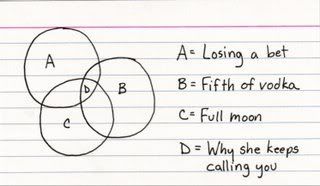 A
B
D
C
A = Losing a bet
B = Fifth of vodka
C = Full moon
D = Why she keeps
calling you